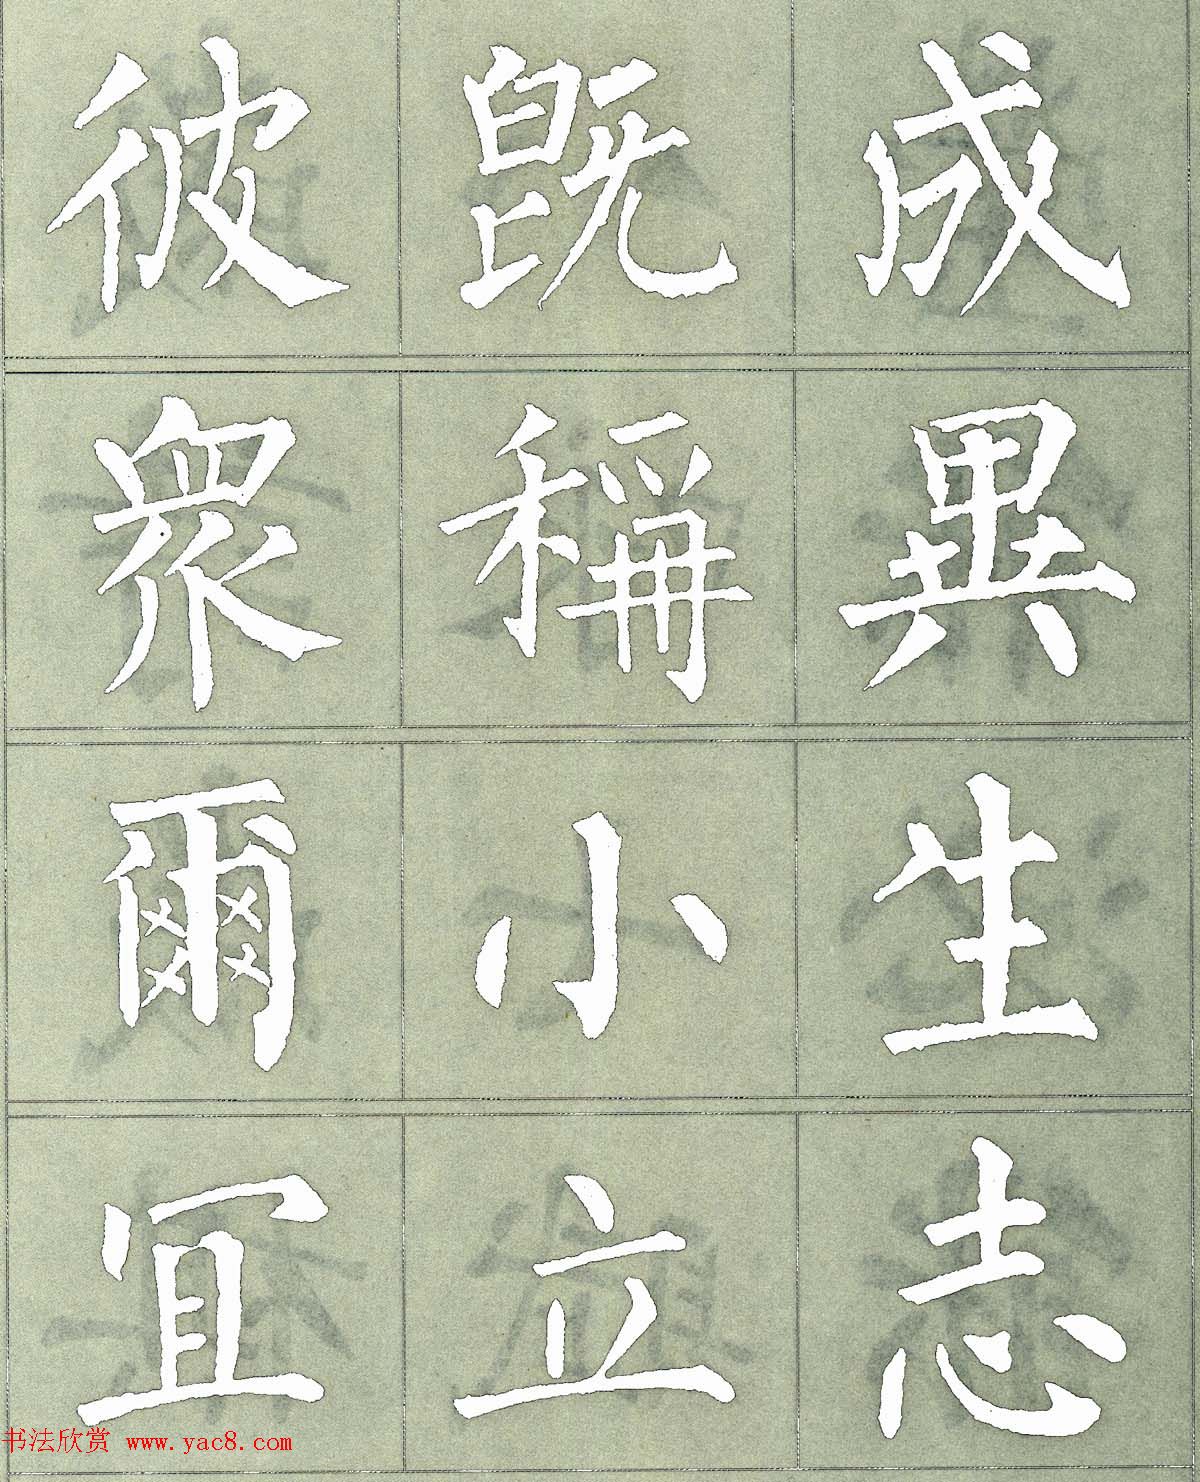 彼既成
衆稱異
爾小生
冝立志
书法欣赏 www.yac8.com